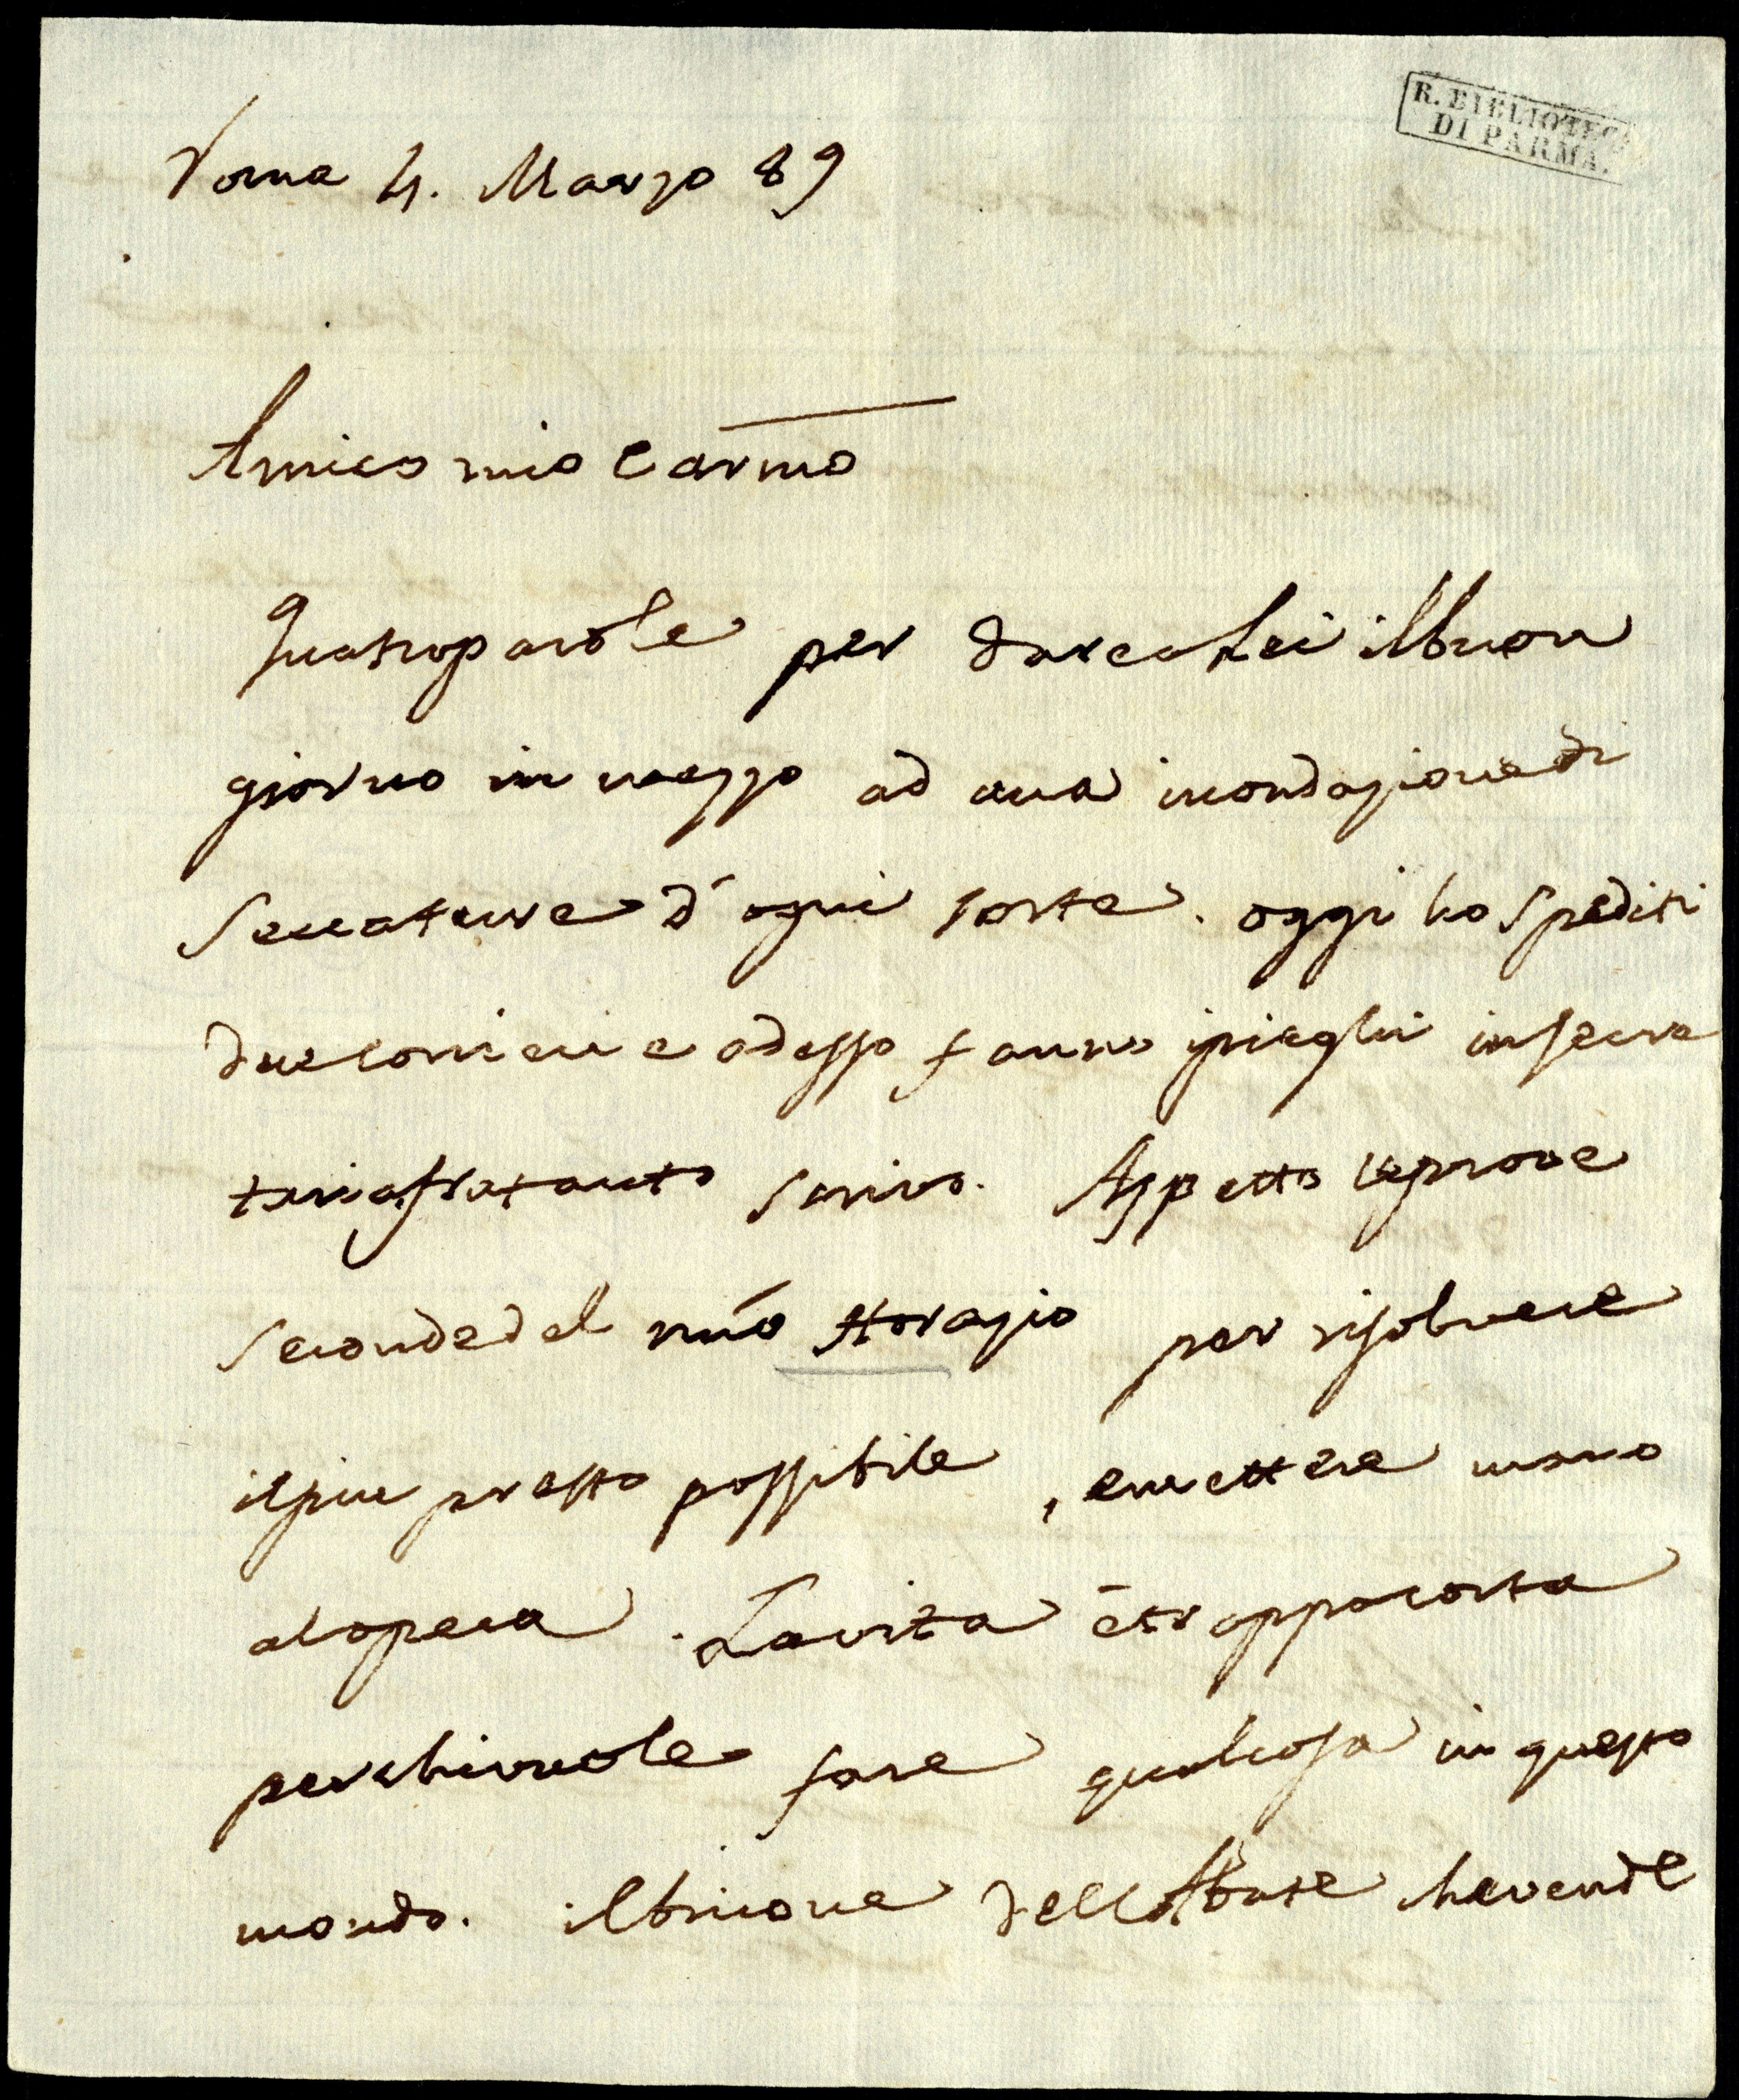 R. BIBLIOTECA
DI PARMA.
Roma 4. Marzo 89
Amico mio Carmo
Quatroparole per darcalei ilbuon
giorno in mezzo ad una inondazionedi
seccature d'ogni sorte. oggi ho spediti
duecorrieri e adesso fanno ipieghi insecre
tariafratanto scrivo. Aspetto leprove
secondedel mio Horazio per risolvere
ilpiu presto possibile, emettere mano
alopera. Lavita ètroppocorta
perchivuole fare qualcosa in questo
mondo. ilbricone dellAbate